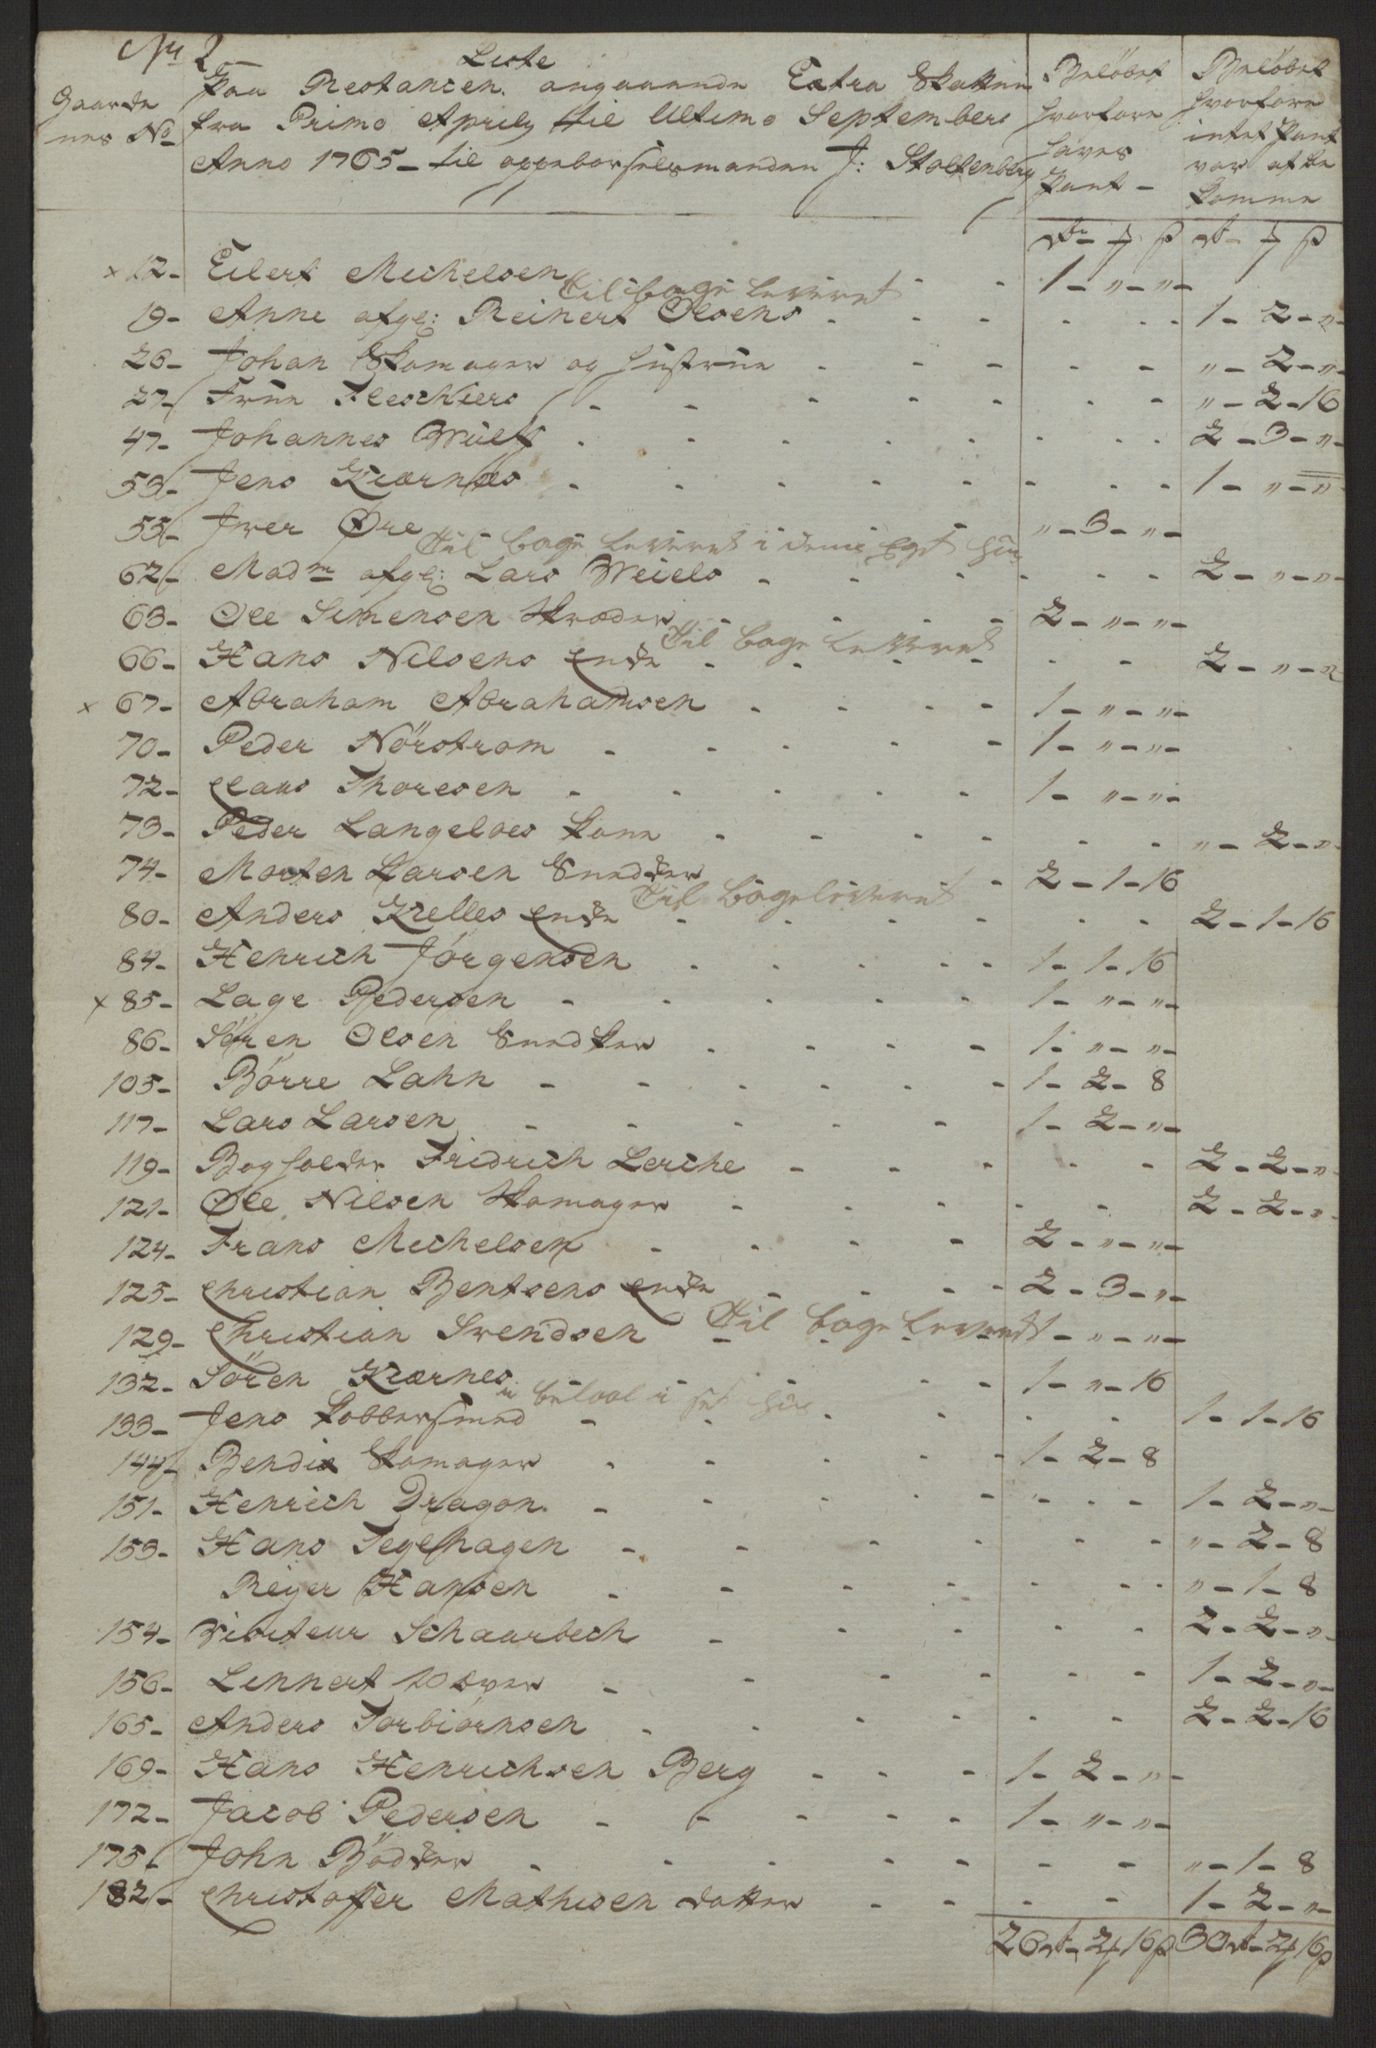 No 2
Liste
Gaarde
nes No
Paa Restancen angaaende Extra Skatten
fra Primo Aprily til Ultimo Septembers
Anno 1765 - til oppebørselsmanden J: Stoltenberg
Beløbet
hvorfore
haves
Pant -
Beløbet
hvorfore
intet Pant
var at be
komme
x 12- Eilert Michelsen - - 1 - " - " -
Til bage leveret
19- Anne afgl: Reinert Olsens - - - - - 1 - 2 - " -
26- Johan Skomager og hustrue - - - - - " - 2 - " -
27- Frue Fleschiers - - - - - - - " - 2 - 16
47- Johannes Wulf - - - - - - - 2 - 3 - " -
53- Jens Kiærnes - - - - - - - 1 - " - " -
55- Iver Øre - " - 3 - " -
Til bage leveret i
62- Madm afgl: Lars Weiels - - - - - 2 - " - " -
63- Ole Simensen Skræder - - - 2 - " - " -
Til bage leveret
66- Hans Nilsens Enke - - - - - 2 - " - "
x 67- Abraham Abrahamsen - - - - 1 - " - " -
70- Peder Nörstrøm - - - - - 1 - " - " -
72- Claus Thoresen - - - - - 1 - " - " -
73- Peder Langeloes Kone - - - - - - " - 2 - " -
74- Morten Larsen Snedker - 2 - 1 - 16
Til bage leveret
80- Anders Kielles Enke - - - - - - 2 - 1 - 16
84- Henrich Jörgensen - - - - - 1 - 1 - 16
x 85- Lage Pedersen - - - - - 1 - " - " -
86- Sören Olsen Snedker - - - - 1 - " - " -
105- Börre Lahn - - - - - - 1 - 2 - 8
117- Lars Larsen - - - - - 1 - 2 - " -
119- Bogholder Fridrich Lerche - - - - - 2 - 2 - " -
121- Ole Nilsen Skomager - - - - - 2 - 2 - " -
124- Frans Michelsen - - - - 2 - " - " -
125- Christian Bentsens Enke - - - - 2 - 3 - " -
129- Christian Svendsen - - - - 1 - " - " -
Til bage leveret
132- Sören Kiærnes - - - - - 1 - " - 16
133- Jens Kobbersmed - - - - - - 1 - 1 - 16
144- Bendix Skomager - - - - - 1 - 2 - 8
151- Henrich Dragon - - - - - - - - 1 - 2 - " -
153- Hans Tegelhagen - - - - - - " - 2 - 8
Reyer Hansen - - - - - - - " - 1 - 8
154- Visiteur Schaarbech - - - - - 2 - 2 - " -
156- Lennert Væver - - - - - - 1 - 2 - " -
165- Anders Torbiörnsen - - - - - - 2 - 2 - 16
169- Hans Henrichsen Berg - - - 1 - 2 - " -
172- Jacob Pedersen - - - - - 1 - " - " -
175- John Bödker - - - - - - - " - 1 - 8
182- Christoffer Mathisen datter - - - - 1 - 2 - " -
26 - 2 16 30 - 2 16